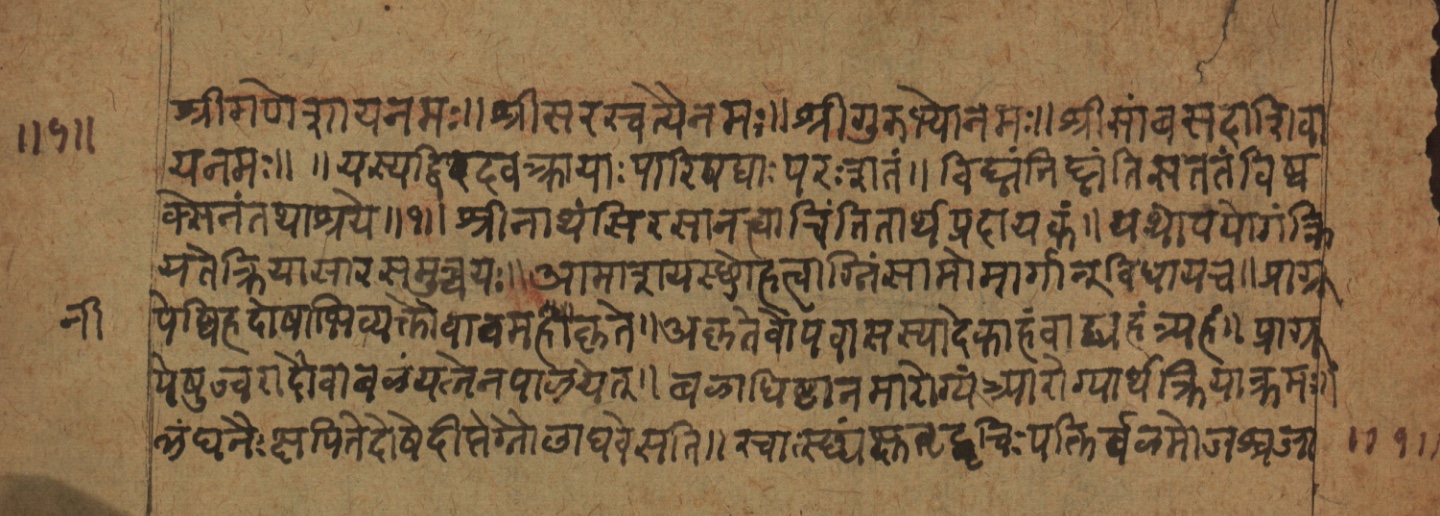 श्रीगणेशायनमः॥ श्रीसरस्वत्यैनमः॥ श्रीगुरुभ्योनमः॥ श्रीसांबसदाशिवा
॥१॥
यनमः॥ ॥ यस्यद्विरदवक्त्रायाः पारिषद्याः परःशतं॥ विघ्नंनिघ्नंतिसततंविष्व
क्सेनंतथाश्रये॥१॥ श्रीनाथंसिरसानत्वाचिंतितार्थप्रदायकं॥ यथोपयोगंक्रि
यतेक्रियासारसमुच्चयः॥ आमाशयस्थोहत्वाग्निंसामोमार्गान्विधायच॥ प्राग्रू
नी
पेष्विहदोषाभिव्यक्तौवाव महीकृते॥ अकृतेवोपवासस्यादेकाहंवाद्व्यहंत्र्यहं॥ प्राग्रू
पेषुज्वरादौवाबळंयत्नेनपाळयेत्॥ बळाधिष्ठानमारोग्यंआरोग्यार्थक्रियाक्रमः॥
लंघनैः क्षपितेदोषेदीप्तेग्नौलाघवेसति॥ स्वास्थ्यंक्षुतृट्रुचिः पक्तिर्बळमोजश्चजा
॥१॥